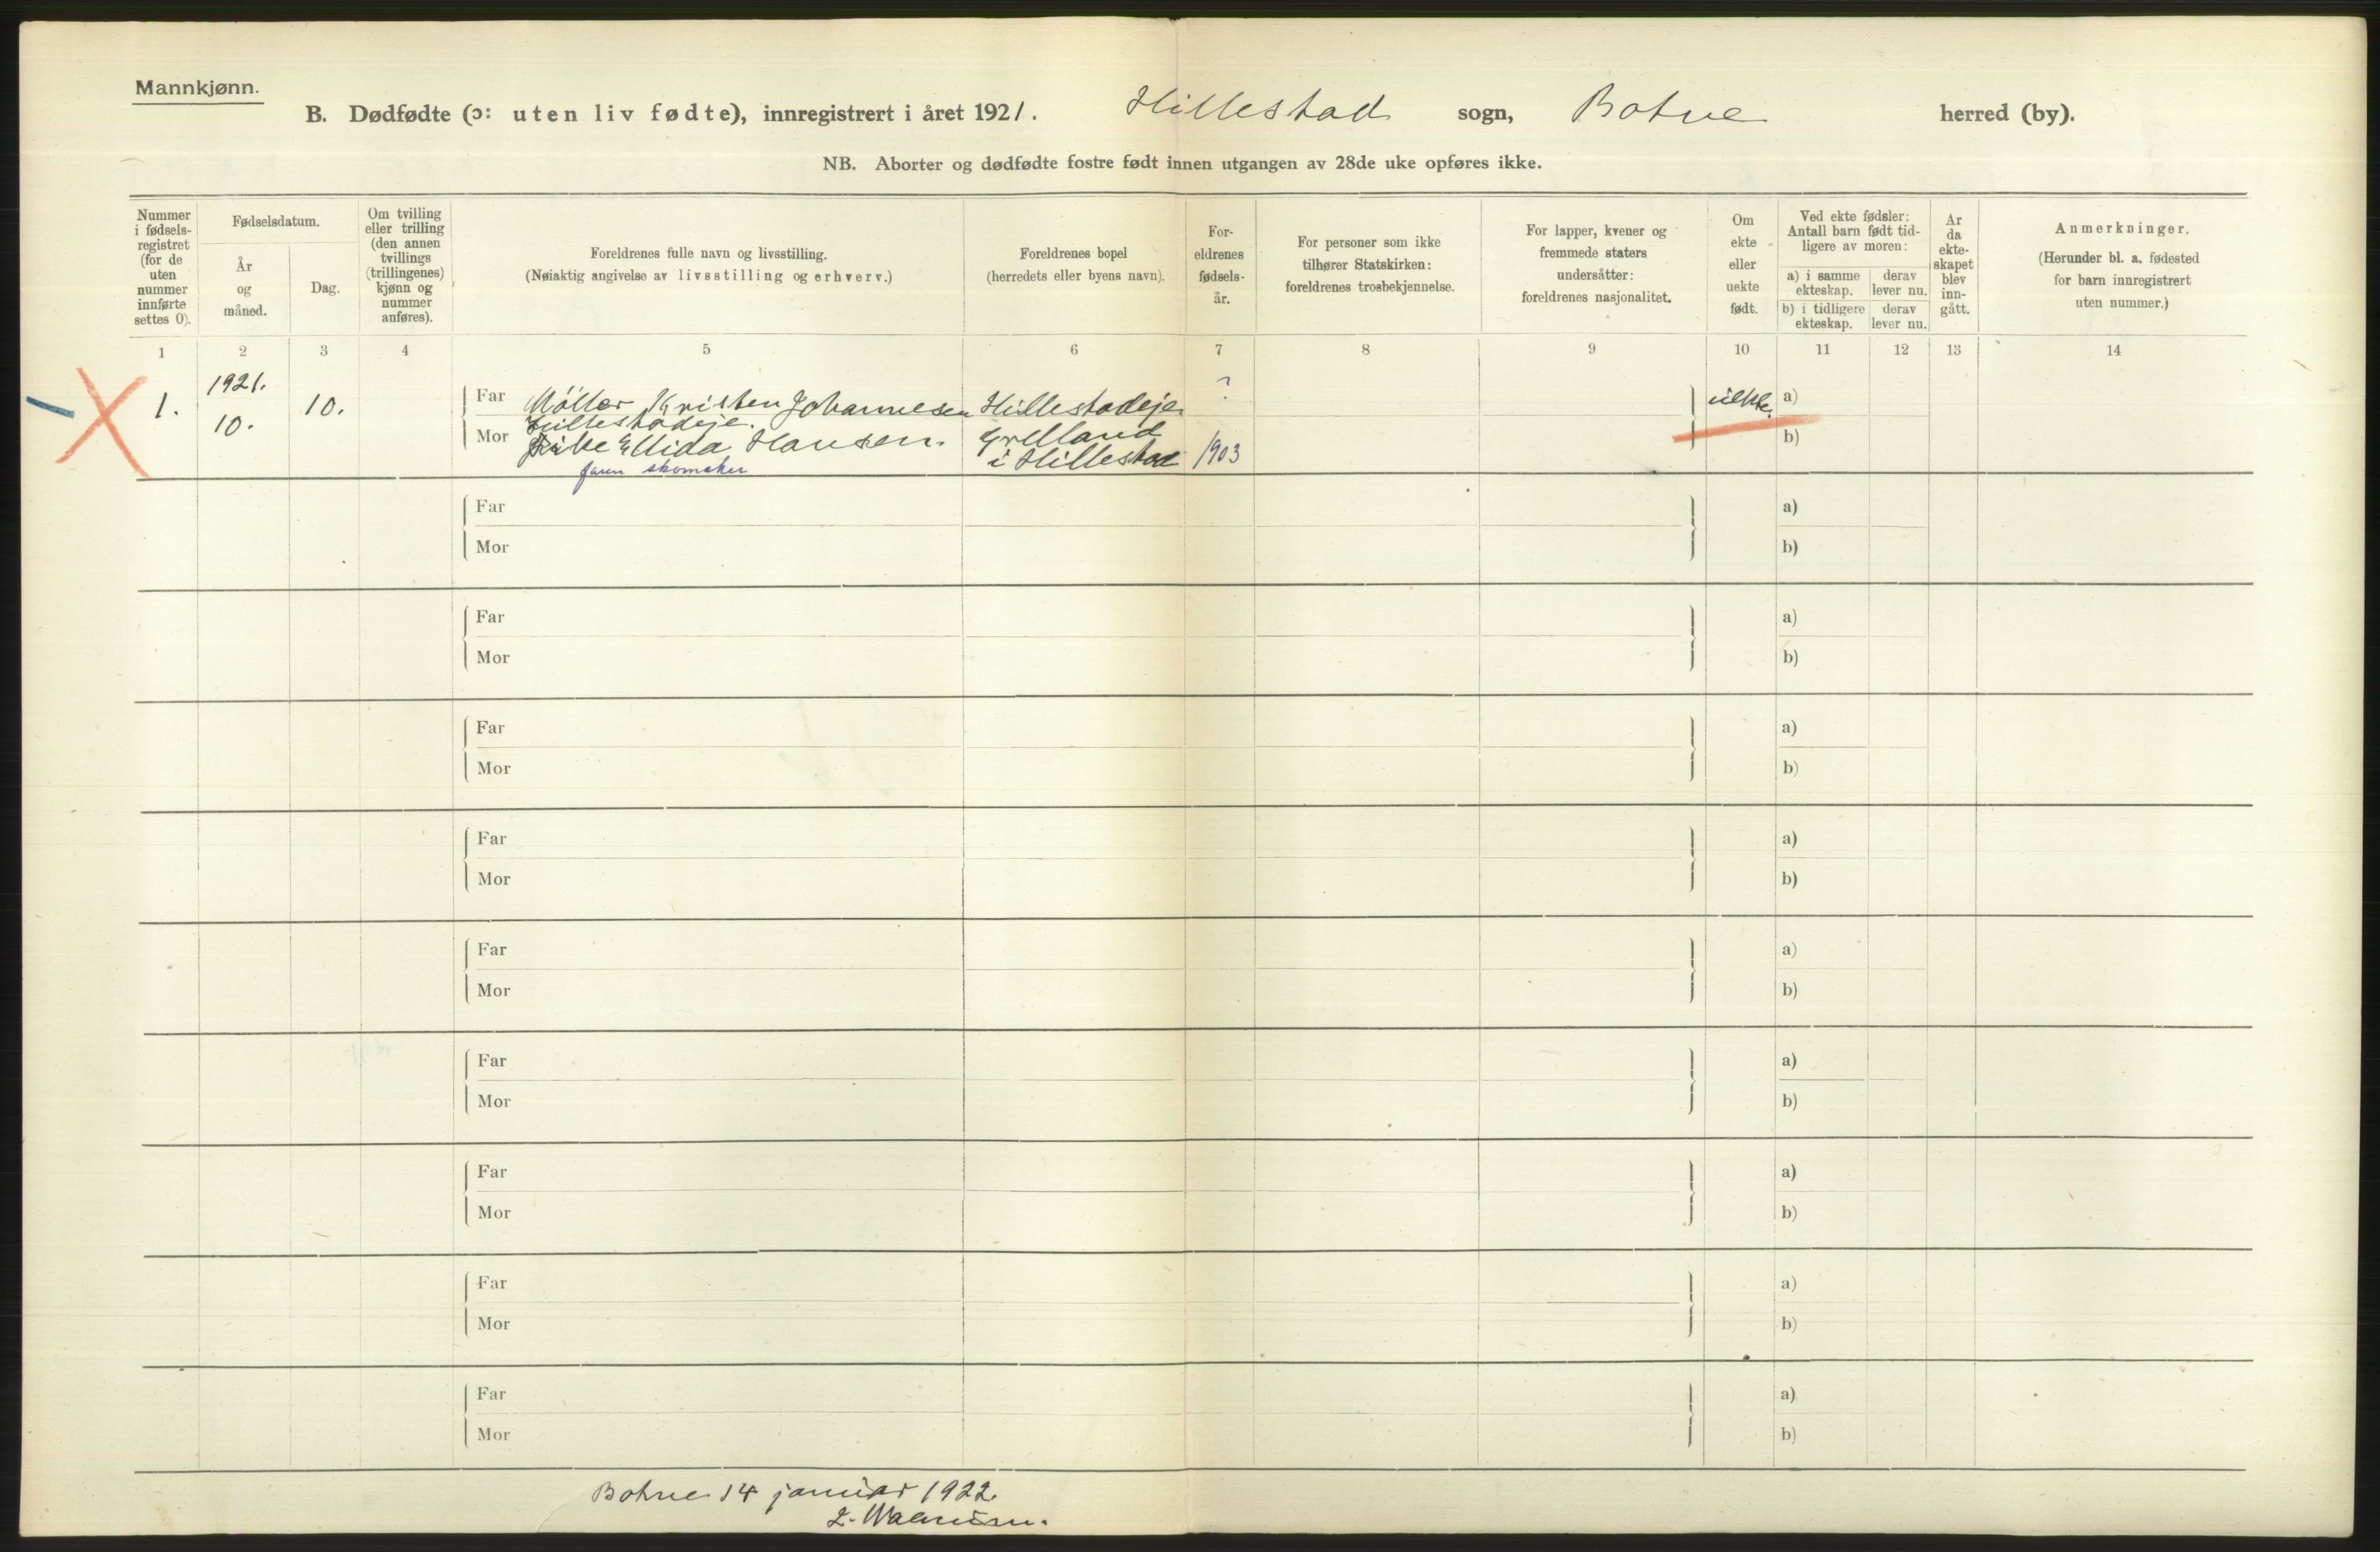 Mannkjønn.
B. Dødfødte (ɔ: uten liv fødte), innregistrert i året 1921. Hillestad sogn, Botne herred (by).
NB. Aborter og dødfødte fostre født innen utgangen av 28de uke opføres ikke.
Nummer
i fødsels-
registret
(for de
uten
nummer
innførte
settes 0).
Fødselsdatum.
År
og
måned.
Dag.
Om tvilling
eller trilling
(den annen
tvillings
(trillingenes)
kjønn og
nummer
anføres).
Foreldrenes fulle navn og livsstilling.
(Nøiaktig angivelse av livsstilling og erhverv.)
Foreldrenes bopel
(herredets eller byens navn).
For-
eldrenes
fødsels-
år.
For personer som ikke
tilhører Statskirken:
foreldrenes trosbekjennelse.
For lapper, kvener og
fremmede staters
undersåtter:
foreldrenes nasjonalitet.
Om
ekte
eller
uekte
født.
Ved ekte fødsler:
Antall barn født tid-
ligere av moren:
a) i samme
ekteskap.
derav
lever nu.
b) i tidligere
ekteskap.
derav
lever nu.
År
da
ekte-
skapet
blev
inn-
gått.
Anmerkninger.
(Herunder bl. a. fødested
for barn innregistrert
uten nummer.)
1 2 3 4 5 6 7 8 9 10 11 12 13 14
1. 1921. 10. 10.
Far Møller Kristen Johannesen Hillestadeje ? uekte. a)
Hillestadeje.
Mor Ellida Hansen. Grelland b)
i Hillestad 1903
faren skomaker
Far a)
Mor b)
Far a)
Mor b)
Far a)
Mor b)
Far a)
Mor b)
Far a)
Mor b)
Far a)
Mor b)
Far a)
Mor b)
Far a)
Mor b)
Far a)
Mor b)
Botne 14 januar 1922.